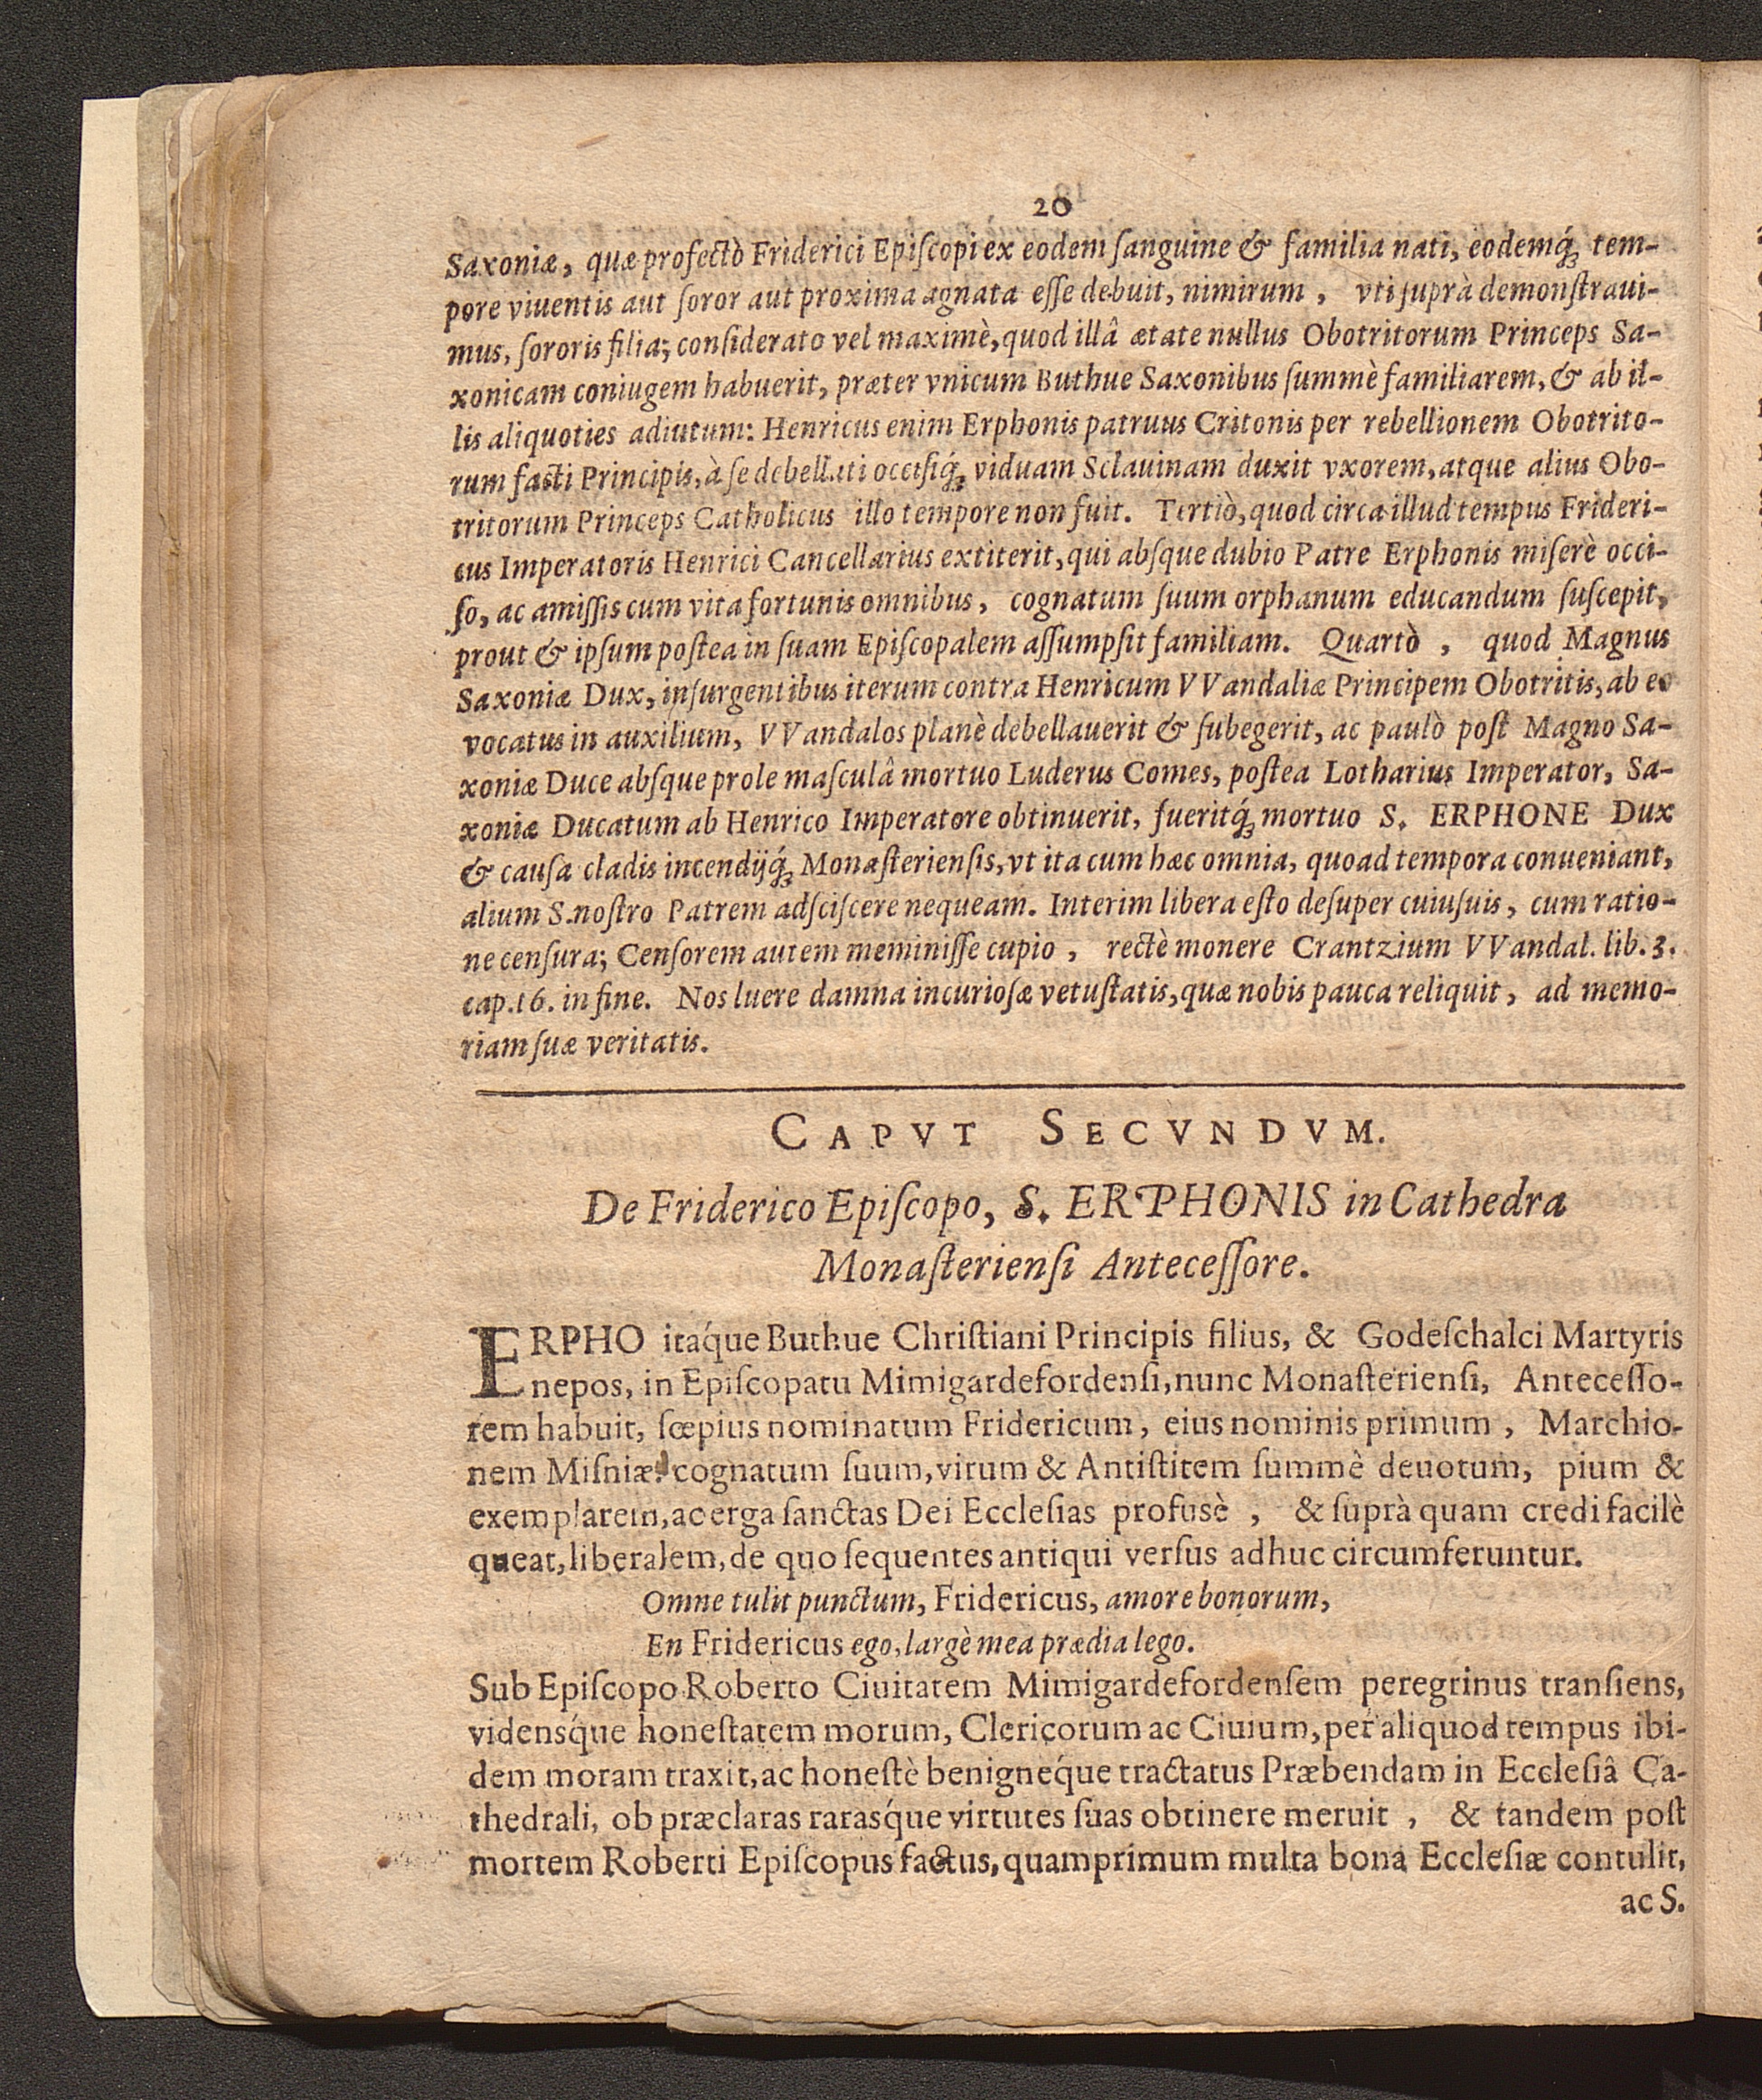 20
Saxoniæ, quæ profectò Friderici Epiſcopi ex eodem ſanguine & familia nati, eodemq́ꝫ tem-
pore viuentis aut ſoror aut proxima agnata eſſe debuit, nimirum, vti ſuprà demonſtraui-
mus, ſororis filia; conſiderato vel maximè, quod illâ ætate nullus Obotritorum Princeps Sa-
xonicam coniugem habuerit, præter vnicum Buthue Saxonibus ſummè familiarem, & ab il-
lis aliquoties adiutum: Henricus enim Erphonis patruus Critonis per rebellionem Obotrito-
rum facti Principis, à ſe debellati occiſiq́ꝫ viduam Sclauinam duxit vxorem, atque alius Obo-
tritorum Princeps Catholicus illo tempore non fuit. Tertiò, quod circa illud tempus Frideri-
cus Imperatoris Henrici Cancellarius extiterit, qui abſque dubio Patre Erphonis miſerè occi-
ſo, ac amiſſis cum vita fortunis omnibus, cognatum ſuum orphanum educandum ſuſcepit,
prout & ipſum poſtea in ſuam Epiſcopalem aſſumpſit familiam. Quartò, quod Magnus
Saxoniæ Dux, inſurgentibus iterum contra Henricum VVandaliæ Principem Obotritis, ab eo
vocatus in auxilium, VVandalos planè debellauerit & ſubegerit, ac paulò poſt Magno Sa-
xoniæ Duce abſque prole maſculâ mortuo Luderus Comes, poſtea Lotharius Imperator, Sa-
xoniæ Ducatum ab Henrico Imperatore obtinuerit, fueritq́ꝫ mortuo S. ERPHONE Dux
& cauſa cladis incendijq́ꝫ Monaſterienſis, vt ita cum hæc omnia, quoad tempora conueniant,
alium S. noſtro Patrem adſciſcere nequeam. Interim libera eſto deſuper cuiuſuis, cum ratio-
ne cenſura; Cenſorem autem meminiſſe cupio, rectè monere Crantzium VVandal. lib. 3.
cap. 16. in fine. Nos luere damna incurioſæ vetuſtatis, quæ nobis pauca reliquit, ad memo-
riam ſuæ veritatis.
CAPVT SECVNDVM.
De Friderico Epiſcopo, S. ERPHONIS in Cathedra
Monaſterienſi Anteceſſore.
ERPHO itaq́ue Buthue Chriſtiani Principis filius, & Godeſchalci Martyris
nepos, in Epiſcopatu Mimigardefordenſi, nunc Monaſterienſi, Anteceſſo-
rem habuit, ſœpius nominatum Fridericum, eius nominis primum, Marchio-
nem Miſniæ, cognatum ſuum, virum & Antiſtitem ſummè deuotum, pium &
exemplarem, ac erga ſanctas Dei Eccleſias profusè, & ſuprà quam credi facilè
queat, liberalem, de quo ſequentes antiqui verſus adhuc circumferuntur.
Omne tulit punctum, Fridericus, amore bonorum,
En Fridericus ego, largè mea prædia lego.
Sub Epiſcopo Roberto Ciuitatem Mimigardefordenſem peregrinus tranſiens,
videnſq́ue honeſtatem morum, Clericorum ac Ciuium, per aliquod tempus ibi-
dem moram traxit, ac honeſtè benigneq́ue tractatus Præbendam in Eccleſiâ Ca-
thedrali, ob præclaras raraſq́ue virtutes ſuas obtinere meruit, & tandem poſt
mortem Roberti Epiſcopus factus, quamprimum multa bona Eccleſiæ contulit,
ac S.